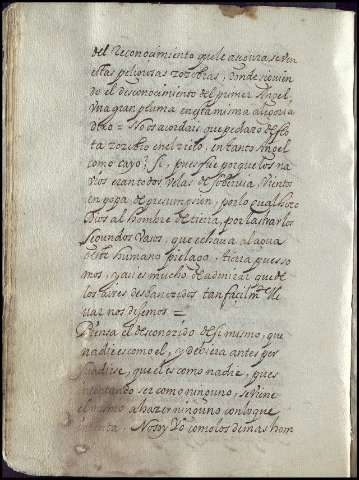 del Reconocimiento que le asegura, se ven
estas peligrosas zozobras, donde siguien
do el desconocimiento del primer Angel,
Una gran pluma en esta misma alegoria
dixo = No os acordais, que pedazo de flo
ta zozobro en el cielo, en tanto Angel
como cayo? Si, pues fue porque los na
vios eran todos velas de sobervia, Vientos
en popa de presumpsion, por lo qual hizo
Dios al hombre de tierra, por lastrar los
segundos Vasos, que echava al agua
deste humano pielago, tierra pues so
mos, y assi es mucho de admirar que de
los aires desvanecidos tan facilmte lle
var nos dejemos =
Piensa el desconozido de si mismo, que
nadie es como el, y deviera antes per
suadirse, que el es como nadie, pues
intentando ser como ninguno, se viene
el mismo a hazer ninguno con lo que
intenta. No soy Yo como los demas hom